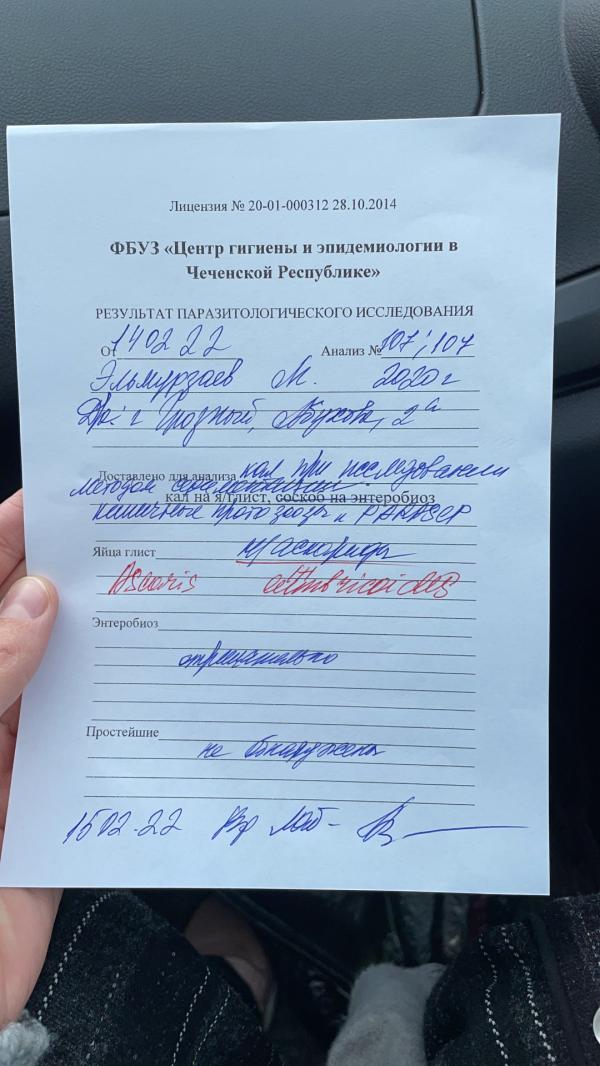 Лицензия № 20-01-000312 28.10.2014
ФБУЗ «Центр гигиены и эпидемиологии в
Чеченской Республике»
РЕЗУЛЬТАТ ПАРАЗИТОЛОГИЧЕСКОГО ИССЛЕДОВАНИЯ
От 140222 Анализ № 107; 107
Эльмурзаев М. 2020г
г Грозный, 2а
Доставлено для анализа кал при исследовании
методом
кал на я/глист, соскоб на энтеробиоз
кишечные протозоозы и PARASEP
Яйца глист аскариды
Ascaris
Энтеробиоз
отрицательно
Простейшие
не обнаружены
1502-22 Вр лаб-